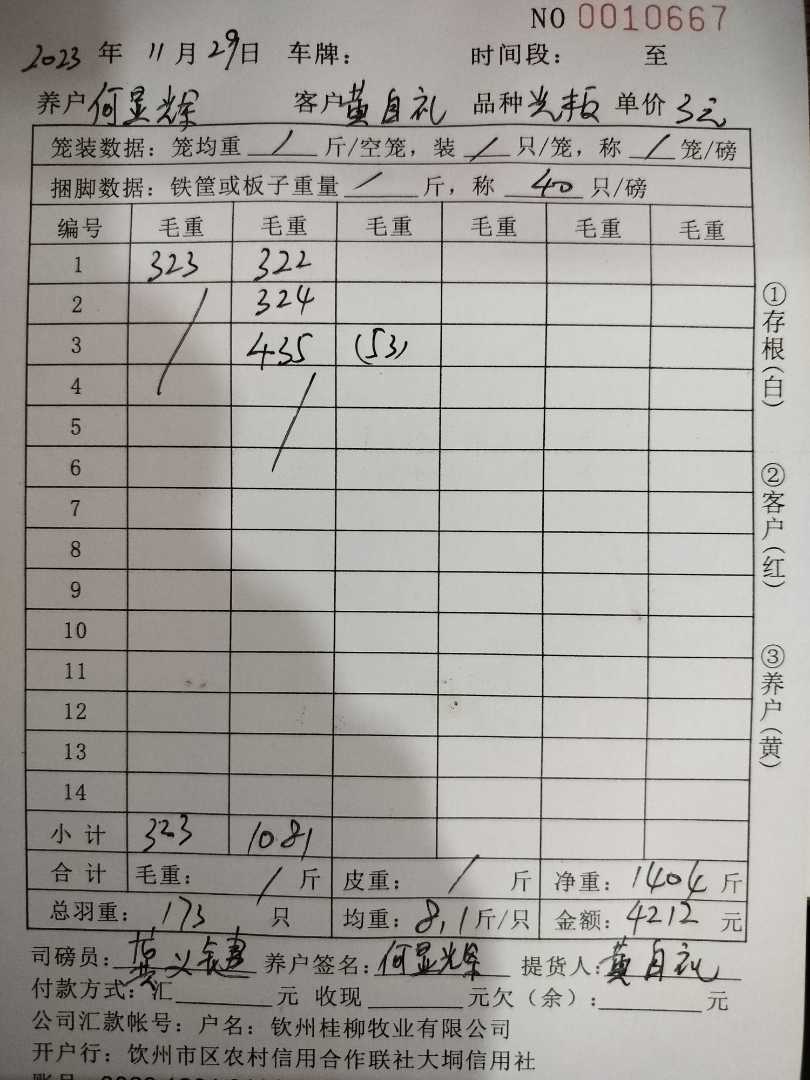 NO 0010667
2023 年 11 月 29日 车牌： 时间段： 至
养户 何显辉 客户 黄自礼 品种 单价 3元
笼装数据：笼均重 / 斤/空笼，装 / 只/笼，称 / 笼/磅
捆脚数据：铁筐或板子重量 / 斤，称 40 只/磅
编号 毛重 毛重 毛重 毛重 毛重 毛重
1 323 322
2 324
3 435 (53)
4
5
6
7
8
9
10
11
12
13
14
小计 323 1081
合计 毛重： / 斤 皮重： / 斤 净重：1404 斤
总羽重：173 只 均重：8.1斤/只 金额：4212 元
司磅员：黄义 养户签名：何显辉 提货人：黄自礼
付款方式：汇 元 收现 元欠（余）： 元
公司汇款帐号：户名：钦州桂柳牧业有限公司
开户行：钦州市区农村信用合作联社大垌信用社
①存根(白) ②客户(红) ③养户(黄)